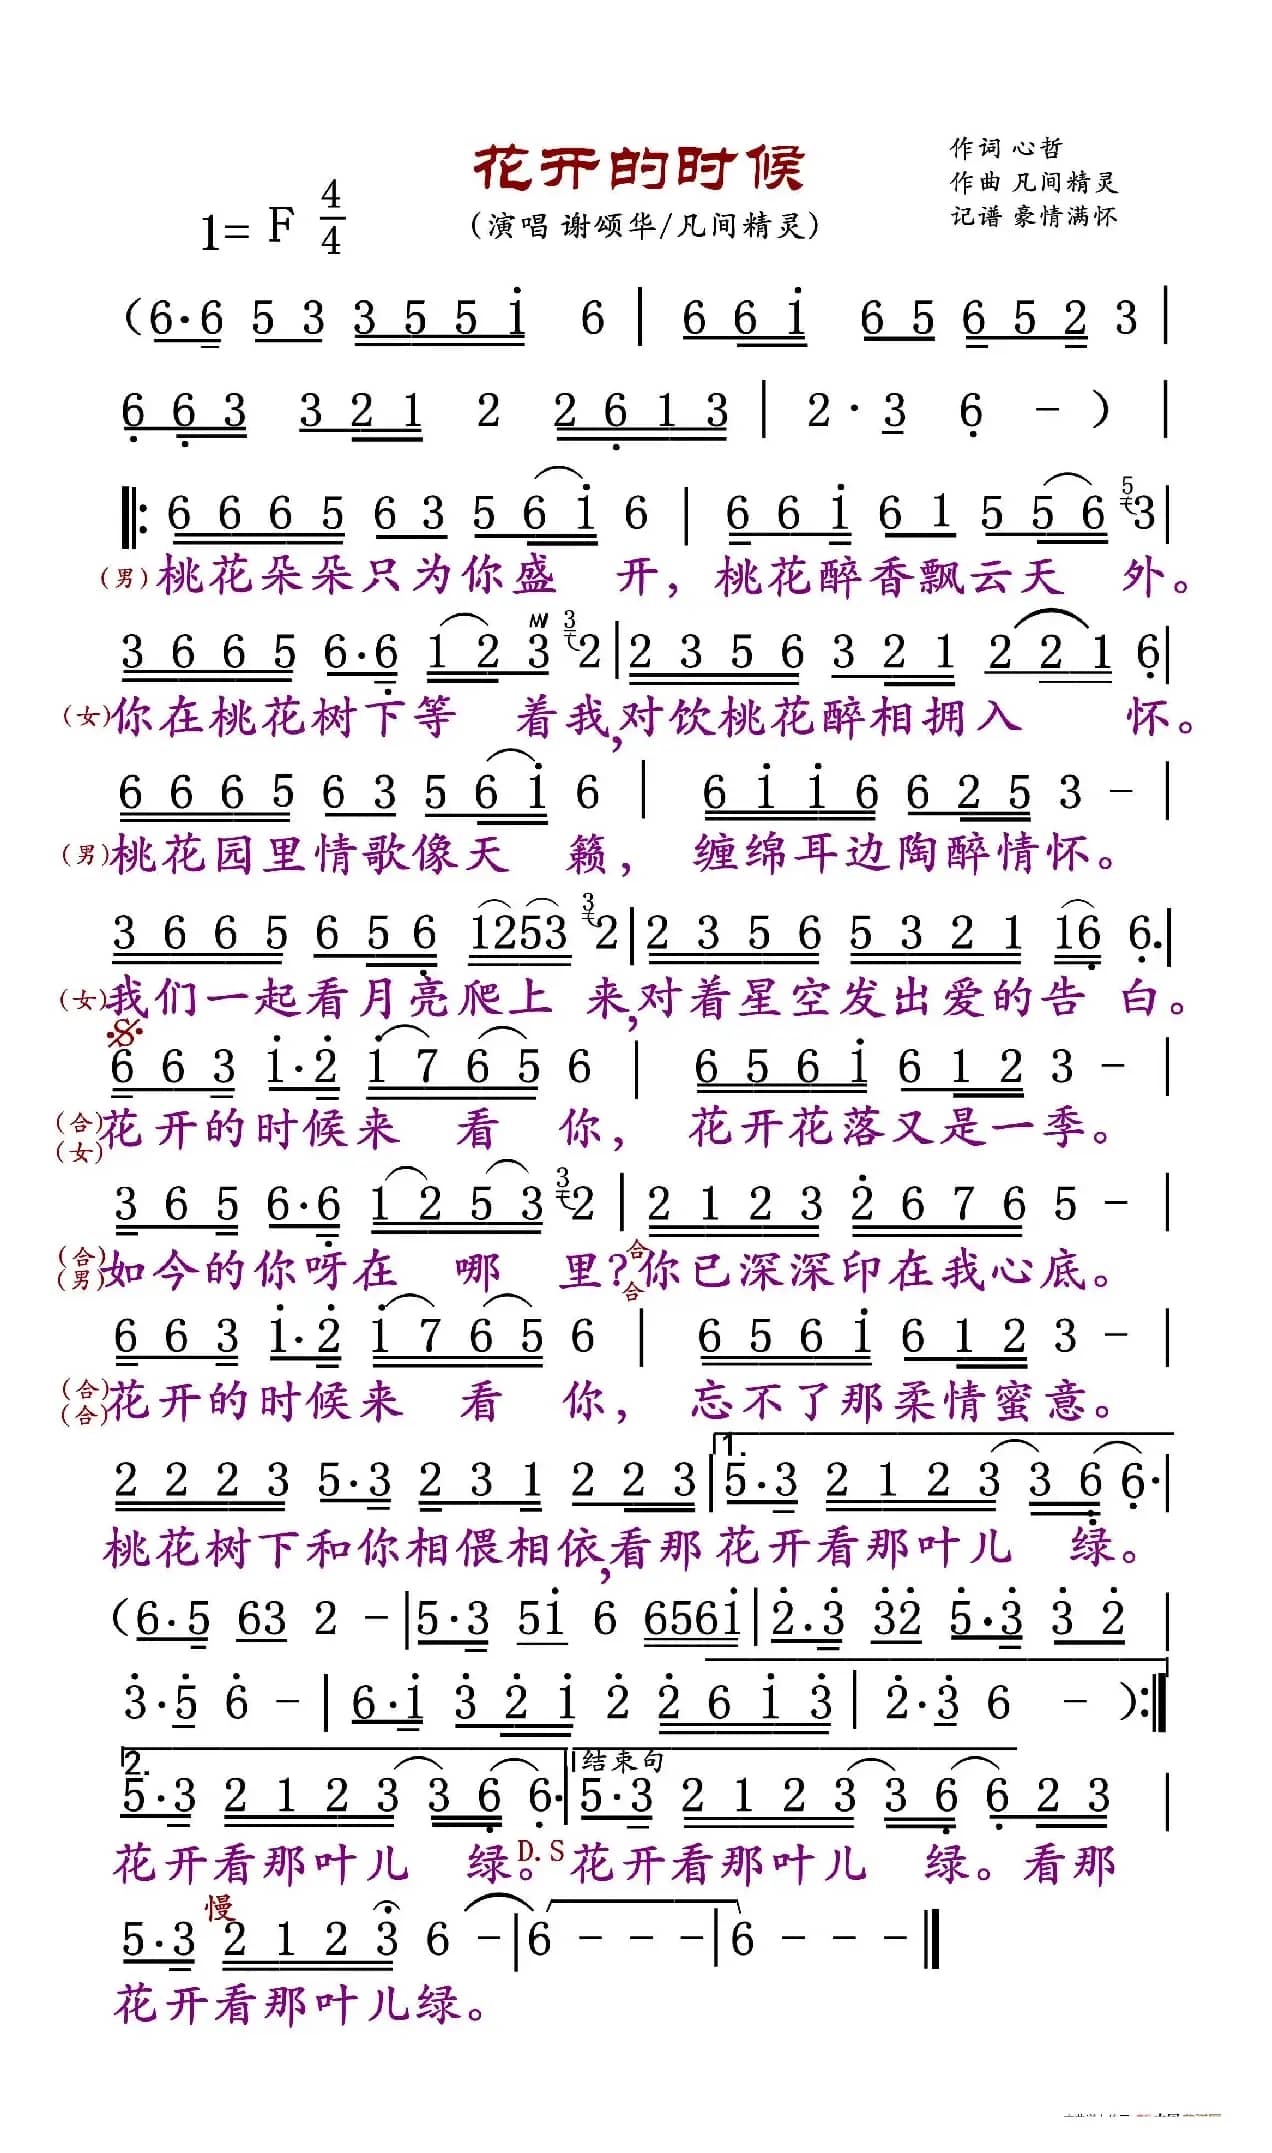 花开的时候
作词 心哲
作曲 凡间精灵
记谱 豪情满怀
1= F 4/4
(演唱 谢颂华/凡间精灵)
(6·6 5 3 3 5 5 i 6 | 6 6 i 6 5 6 5 2 3 |
6 6 3 3 2 1 2 2 6 1 3 | 2· 3 6 - ) |
‖: 6 6 6 5 6 3 5 6 i 6 | 6 6 i 6 1 5 5 6 5 3 |
(男) 桃花朵朵只为你盛 开, 桃花醉香飘云天 外。
3 6 6 5 6·6 1 2 3 3 2 | 2 3 5 6 3 2 1 2 2 1 6 |
(女) 你在桃花树下等 着我,对饮桃花醉相拥入 怀。
6 6 6 5 6 3 5 6 i 6 | 6 i i 6 6 2 5 3 - |
(男) 桃花园里情歌像天 籁, 缠绵耳边陶醉情怀。
3 6 6 5 6 5 6 1253 3 2 | 2 3 5 6 5 3 2 1 16 6. |
(女) 我们一起看月亮爬上 来,对着星空发出爱的告 白。
6 6 3 i·2 i 7 6 5 6 | 6 5 6 i 6 1 2 3 - |
(合) 花开的时候来 看 你, 花开花落又是一季。
(女)
3 6 5 6·6 1 2 5 3 3 2 | 2 1 2 3 2 6 7 6 5 - |
(合) 如今的你呀在 哪 里?合 你已深深印在我心底。
(男) 合
6 6 3 i·2 i 7 6 5 6 | 6 5 6 i 6 1 2 3 - |
(合) 花开的时候来 看 你, 忘不了那柔情蜜意。
(合)
1.
2 2 2 3 5·3 2 3 1 2 2 3 | 5·3 2 1 2 3 3 6 6· |
桃花树下和你相偎相依,看那 花开看那叶儿 绿。
(6·5 63 2 - | 5·3 5i 6 656i | 2·3 32 5·3 3 2 |
3·5 6 - | 6·i 3 2 i 2 2 6 i 3 | 2·3 6 - ):‖
2. 结束句
5·3 2 1 2 3 3 6 6· | 5·3 2 1 2 3 3 6 6 2 3 |
花开看那叶儿 绿。D.S 花开看那叶儿 绿。看那
慢
5·3 2 1 2 3 6 - | 6 - - - | 6 - - - ‖
花开看那叶儿绿。